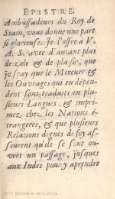 EPISTRE
Ambassadeurs du Roy de
Siam, vous donne une part
si glorieuse. Je l'offre à V.
A. S. avec d'autant plus
de zele & de plaisir, que
je sçay que le Mercure &
les Ouvrages qui en dépendent
sont traduits en plusieurs
Langues, & imprimez
chez les Nations étrangeres,
& que plusieurs
Relations dignes de foy asseurent
qu'ils se sont ouvert
un passage, jusques
aux Indes pour y apprendre